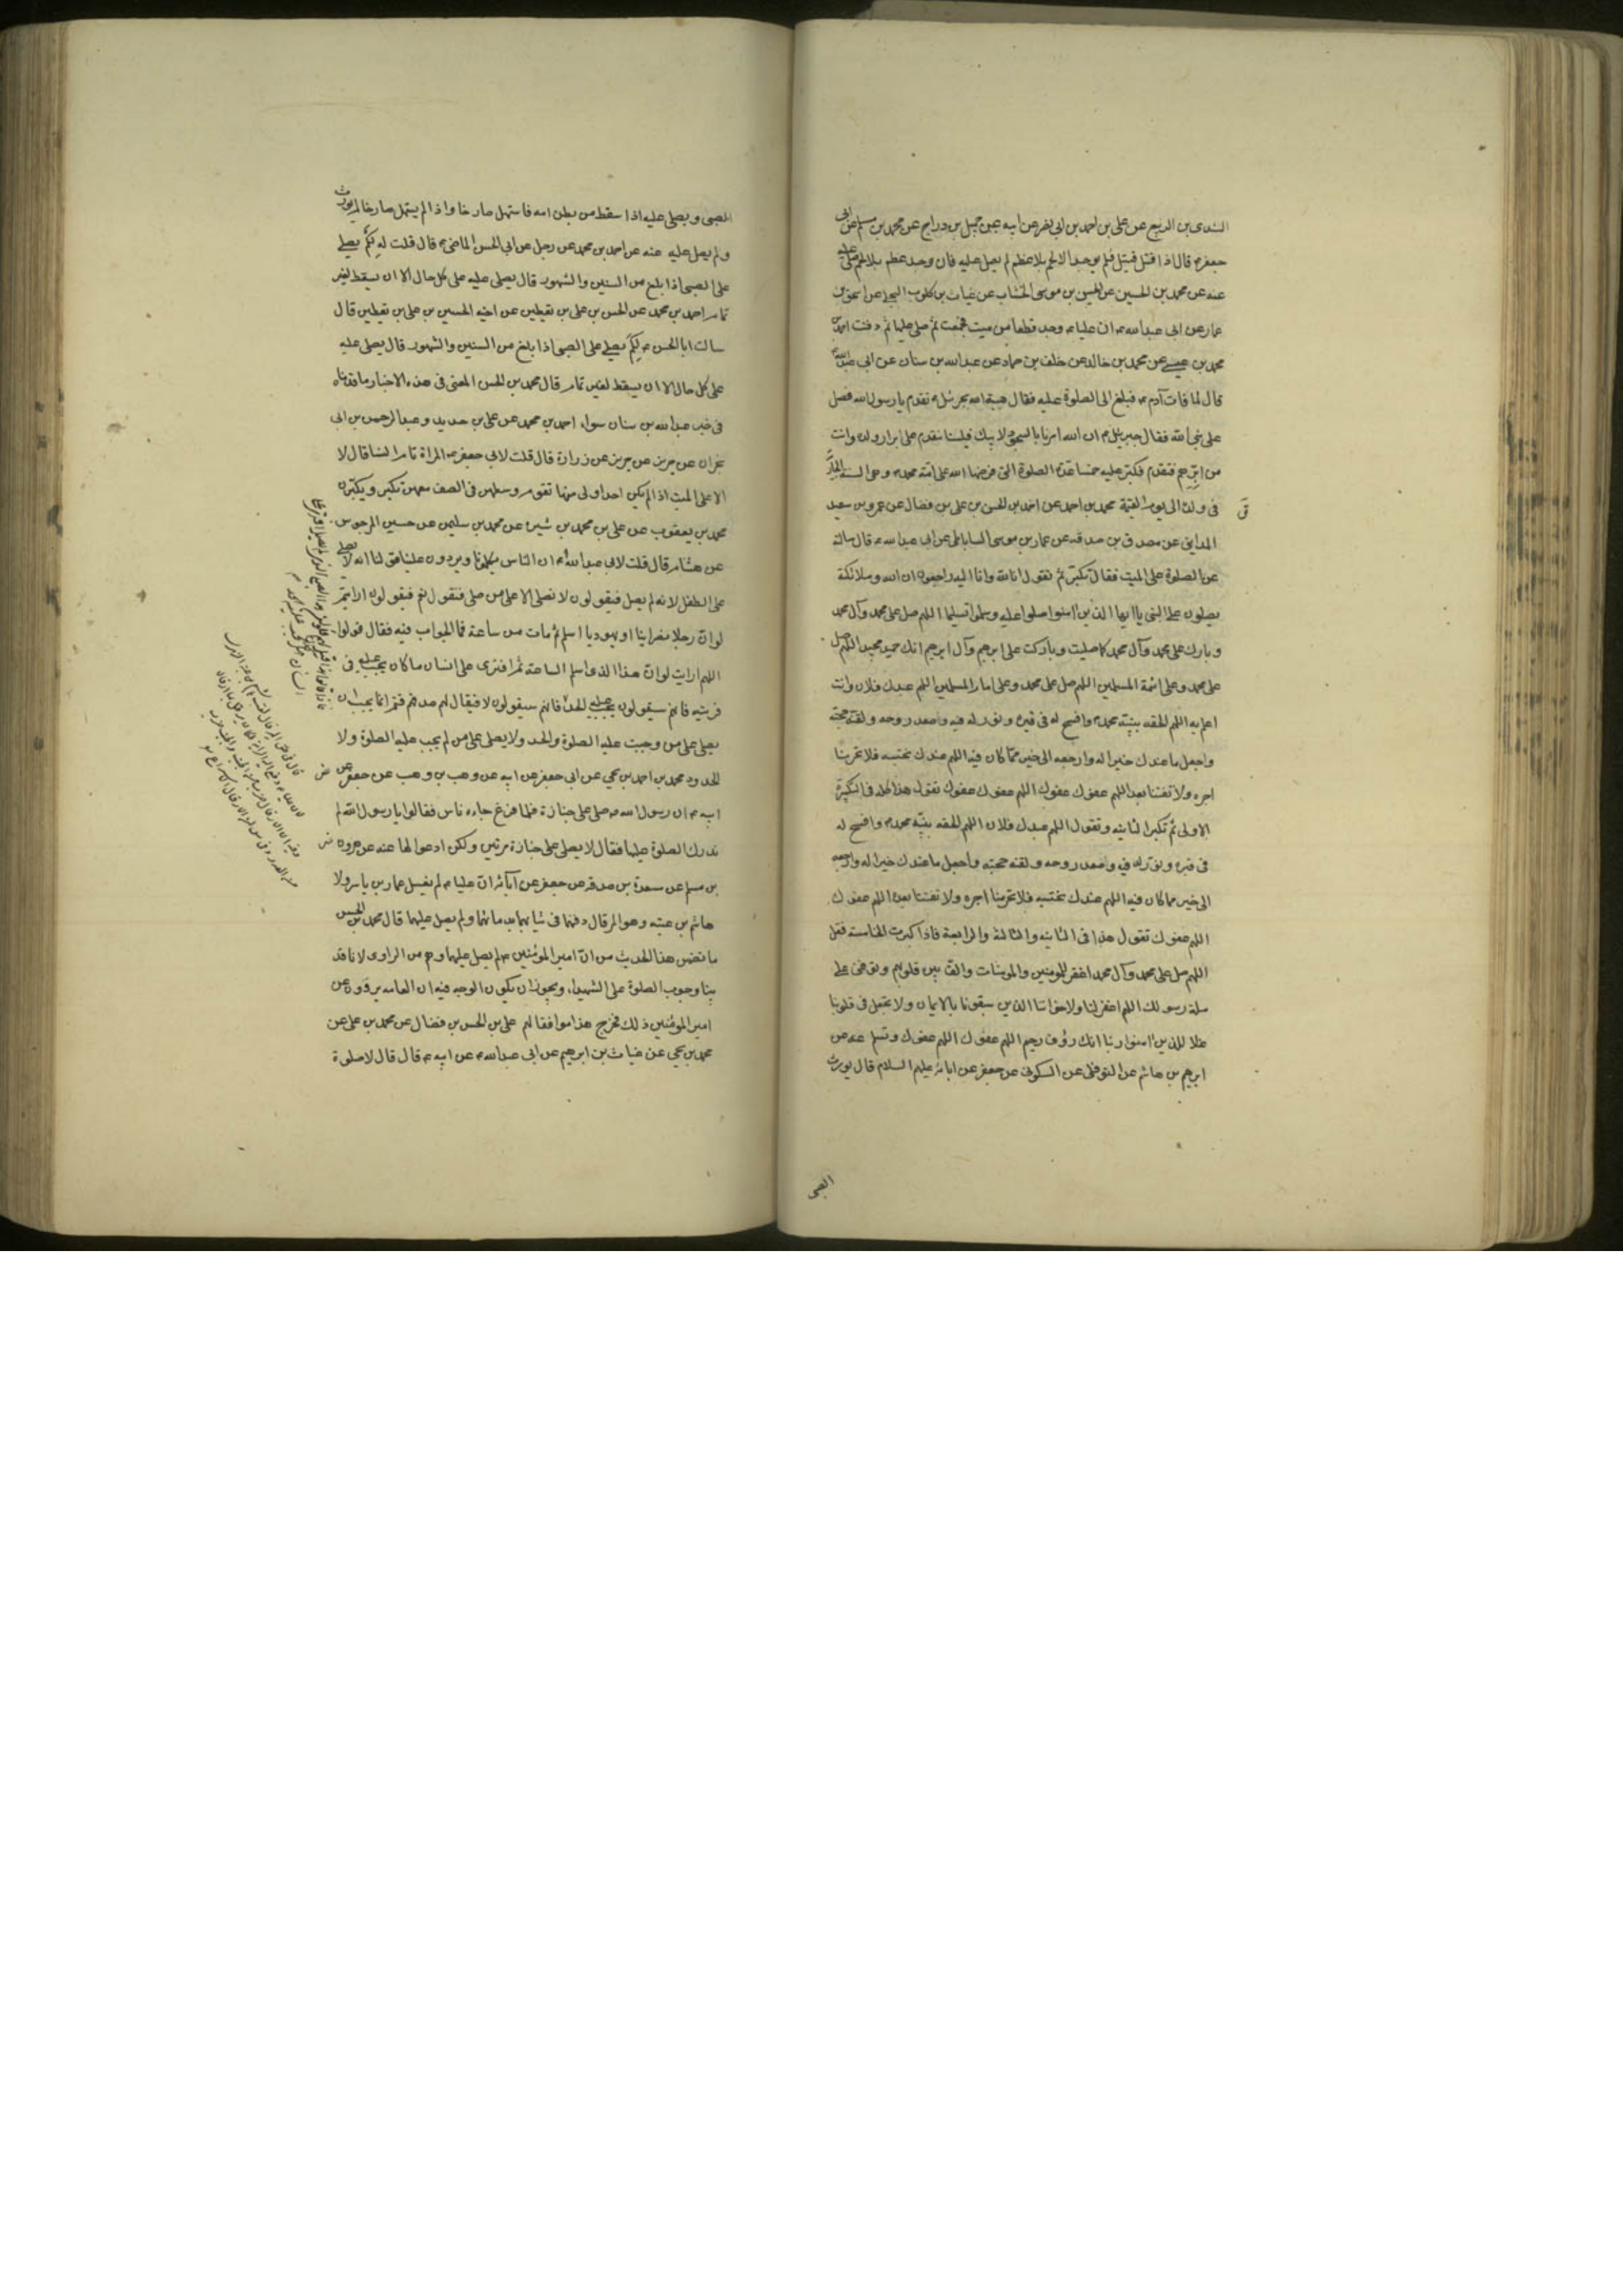 السندى بن الربيع عن على بن احمد بن ابى نصر عن ابيه عن جميل بن دراج عن محمد بن مسلم عن ابى
جعفر ع قال اذا قتل قتيل فلم يوجد الا لحم بلا عظم لم يصل عليه فان وجد عظم بلا لحم صلى عليه
عنه عن محمد بن الحسين عن الحسن بن موسى الخشاب عن غياث بن كلوب البجلى عن اسحق بن
عمار عن ابى عبد الله ع ان عليا ع وجد قطعا من ميت فجمعت ثم صلى عليها ثم دفنت احمد بن
محمد بن عيسى عن محمد بن خالد عن خلف بن حماد عن عبد الله بن سنان عن ابى عبد الله ع
قال لما مات آدم ع فبلغ الى الصلوة عليه فقال هبة الله لجبرئيل ع تقدم يا رسول الله فصل
على نبى الله فقال جبرئيل ع ان الله امرنا بالسجود لابيك فلسنا نتقدم على ابرار ولده وانت
من ابرهم فتقدم فكبر عليه خمسا عدة الصلوة التى فرضها الله على امة محمد ص وهى السنة الجارية
فى ولده الى يوم القيمة محمد بن احمد عن احمد بن الحسن بن على بن فضال عن عمرو بن سعيد
المداينى عن مصدق بن صدقه عن عمار بن موسى الساباطى عن ابى عبد الله ع قال سالته
عن الصلوة على الميت فقال تكبر ثم تقول انا لله وانا اليه راجعون ان الله وملائكته
يصلون على النبى يا ايها الذين امنوا صلوا عليه وسلموا تسليما اللهم صل على محمد وآل محمد
وبارك على محمد وآل محمد كما صليت وباركت على ابرهيم وآل ابرهيم انك حميد مجيد اللهم صل
على محمد وعلى ائمة المسلمين اللهم صل على محمد وعلى امام المسلمين اللهم عبدك فلان وانت
اعلم به اللهم الحقه بنبيه محمد ص وافسح له فى قبره ونور له فيه واصعد روحه ولقنه حجته
واجعل ما عندك خيرا له وارجعه الى خير مما كان فيه اللهم عندك نحتسبه فلا تحرمنا
اجره ولا تفتنا بعده اللهم عفوك عفوك اللهم عفوك عفوك تقول هذا كله فى التكبيرة
الاولى ثم تكبر الثانيه وتقول اللهم عبدك فلان اللهم الحقه بنبيه محمد ص وافسح له
فى قبره ونور له فيه واصعد روحه ولقنه حجته واجعل ما عندك خيرا له وارجعه
الى خير مما كان فيه اللهم عندك نحتسبه فلا تحرمنا اجره ولا تفتنا بعده اللهم عفوك
اللهم عفوك تقول هذا فى الثانيه والثالثة والرابعة فاذا كبرت الخامسة فقل
اللهم صل على محمد وآل محمد اغفر للمومنين والمومنات والف بين قلوبهم وتوفنى على
ملة رسولك اللهم اغفر لنا ولاخواننا الذين سبقونا بالايمان ولا تجعل فى قلوبنا
غلا للذين امنوا ربنا انك رؤف رحيم اللهم عفوك اللهم عفوك وتسلم عنه عن
ابرهيم بن هاشم عن النوفلى عن السكونى عن جعفر عن ابائه عليهم السلام قال يورث
الصبى
الصبى ويصلى عليه اذا سقط من بطن امه فاستهل صارخا واذا لم يستهل صارخا لم يورث
ولم يصل عليه عنه عن احمد بن محمد عن رجل عن ابى الحسن الماضى ع قال قلت له لكم يصلى
على الصبى اذا بلغ من السنين والشهور قال يصلى عليه على كل حال الا ان يسقط لغير
تمام احمد بن محمد عن الحسن بن على بن يقطين عن اخيه الحسين عن على بن يقطين قال
سالت ابا الحسن ع لكم يصلى على الصبى اذا بلغ من السنين والشهور قال يصلى عليه
على كل حال الا ان يسقط لغير تمام قال محمد بن الحسن المعنى فى هذه الاخبار ما قدمناه
فى خبر عبد الله بن سنان سواء احمد بن محمد عن على بن حديد وعبد الرحمن بن ابى
نجران عن حريز عن زرارة قال قلت لابى جعفر ع المراة تام النسا قال لا
الا على الميت اذا لم يكن احد اولى منها تقوم وسطهن فى الصف معهن تكبر ويكبرن
محمد بن يعقوب عن على بن محمد بن شيره عن محمد بن سليمن عن حسين المرجوس
عن هشام قال قلت لابى عبد الله ع ان الناس يكلمونا ويردون علينا قولنا انه لا يصلى
على الطفل لانه لم يصل فيقولون لا نصلى الا على من صلى فنقول نعم فيقولون ارايتم
لو ان رجلا نصرانيا او يهوديا اسلم ثم مات من ساعة فما الجواب فيه فقال قولوا
لهم ارايت لو ان هذا الذى اسلم الساعة ثم افترى على انسان ما كان يجب عليه فى
فريته فانهم سيقولون يجب عليه الحد فانهم سيقولون لا فيقال لهم صدقتم انما يجب ان
يصلى على من وجبت عليه الصلوة والحد ولا يصلى على من لم يجب عليه الصلوة ولا
الحدود محمد بن احمد بن يحيى عن ابى جعفر عن ابيه عن وهب بن وهب عن جعفر عن
ابيه ع ان رسول الله ص صلى على جنازة فلما فرغ جاءه ناس فقالوا يا رسول الله لم
ندرك الصلوة عليها فقال لا يصلى على جنازة مرتين ولكن ادعوا لها عنه عن هرون
بن مسلم عن مسعدة بن صدقه عن جعفر عن آبائه ان عليا ع لم يغسل عمار بن ياسر ولا
هاشم بن عتبه وهو المرقال دفنهما فى ثيابهما بدمائهما ولم يصل عليهما قال محمد بن الحسن
ما تضمن هذا الحديث من ان امير المومنين ع لم يصل عليهما وهم من الراوى لانا قد
بينا وجوب الصلوة على الشهيد، ويجوز ان يكون الوجه فيه ان العامه يروون عن
امير المومنين ذلك فخرج هذا موافقا لهم على بن الحسن بن فضال عن محمد بن على عن
محمد بن يحيى عن غياث بن ابرهيم عن ابى عبد الله ع عن ابيه ع قال قال لا صلوة